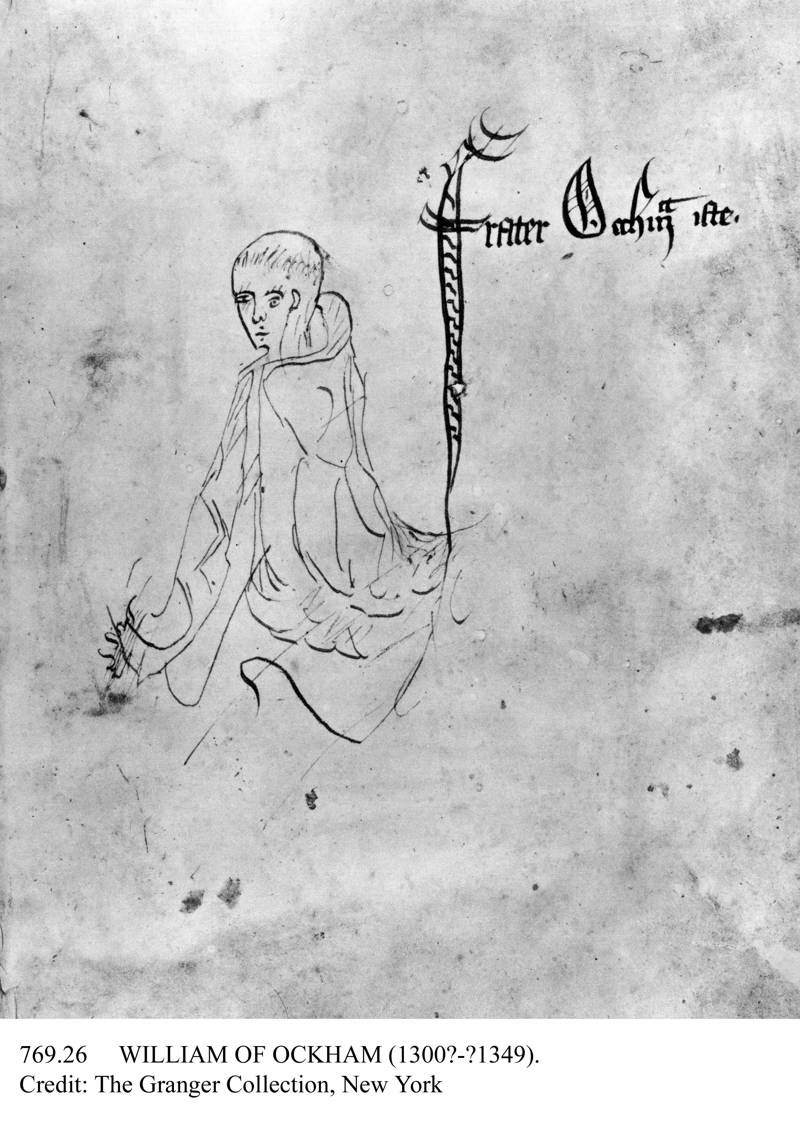 frater Occham iste.
769.26 WILLIAM OF OCKHAM (1300?-?1349).
Credit: The Granger Collection, New York